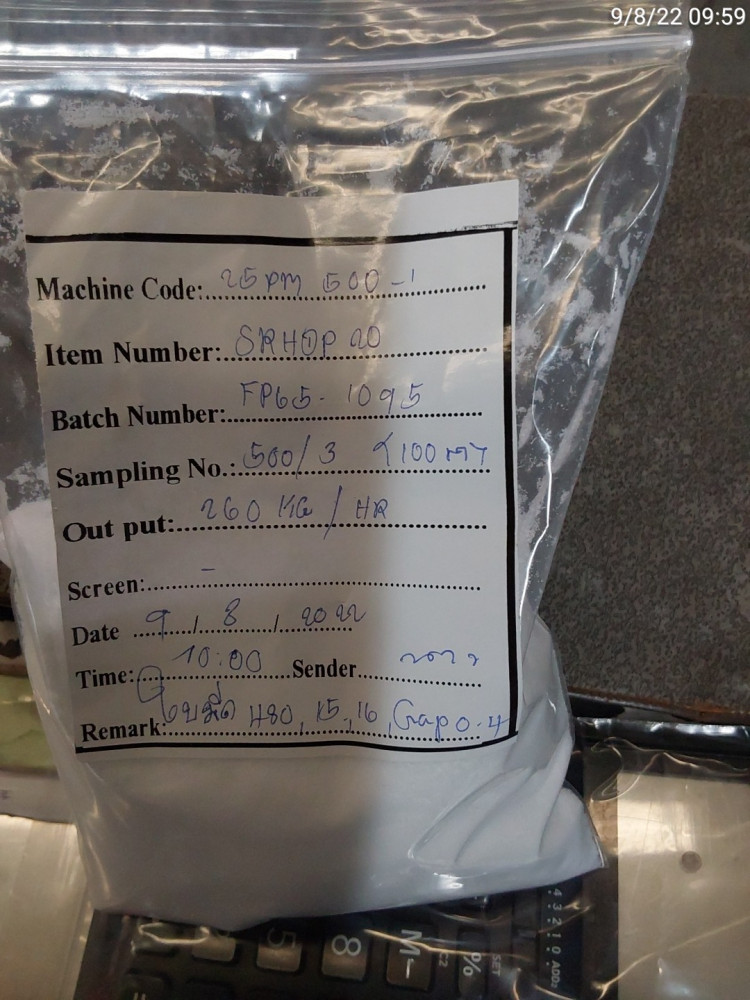 9/8/22 09:59
Machine Code: 25 PM 500-1
Item Number: SRHDP 20
Batch Number: FP65-1095
Sampling No.: 500/3 <100
Out put: 260 KG / HR
Screen: -
Date 9 / 8 / 2022
Time: 10:00 Sender
Remark: ใบมีด H80, 15, 16, Gap 0.4
4 3 2 1 0 ADD2
5 8 M- %
C2 SET